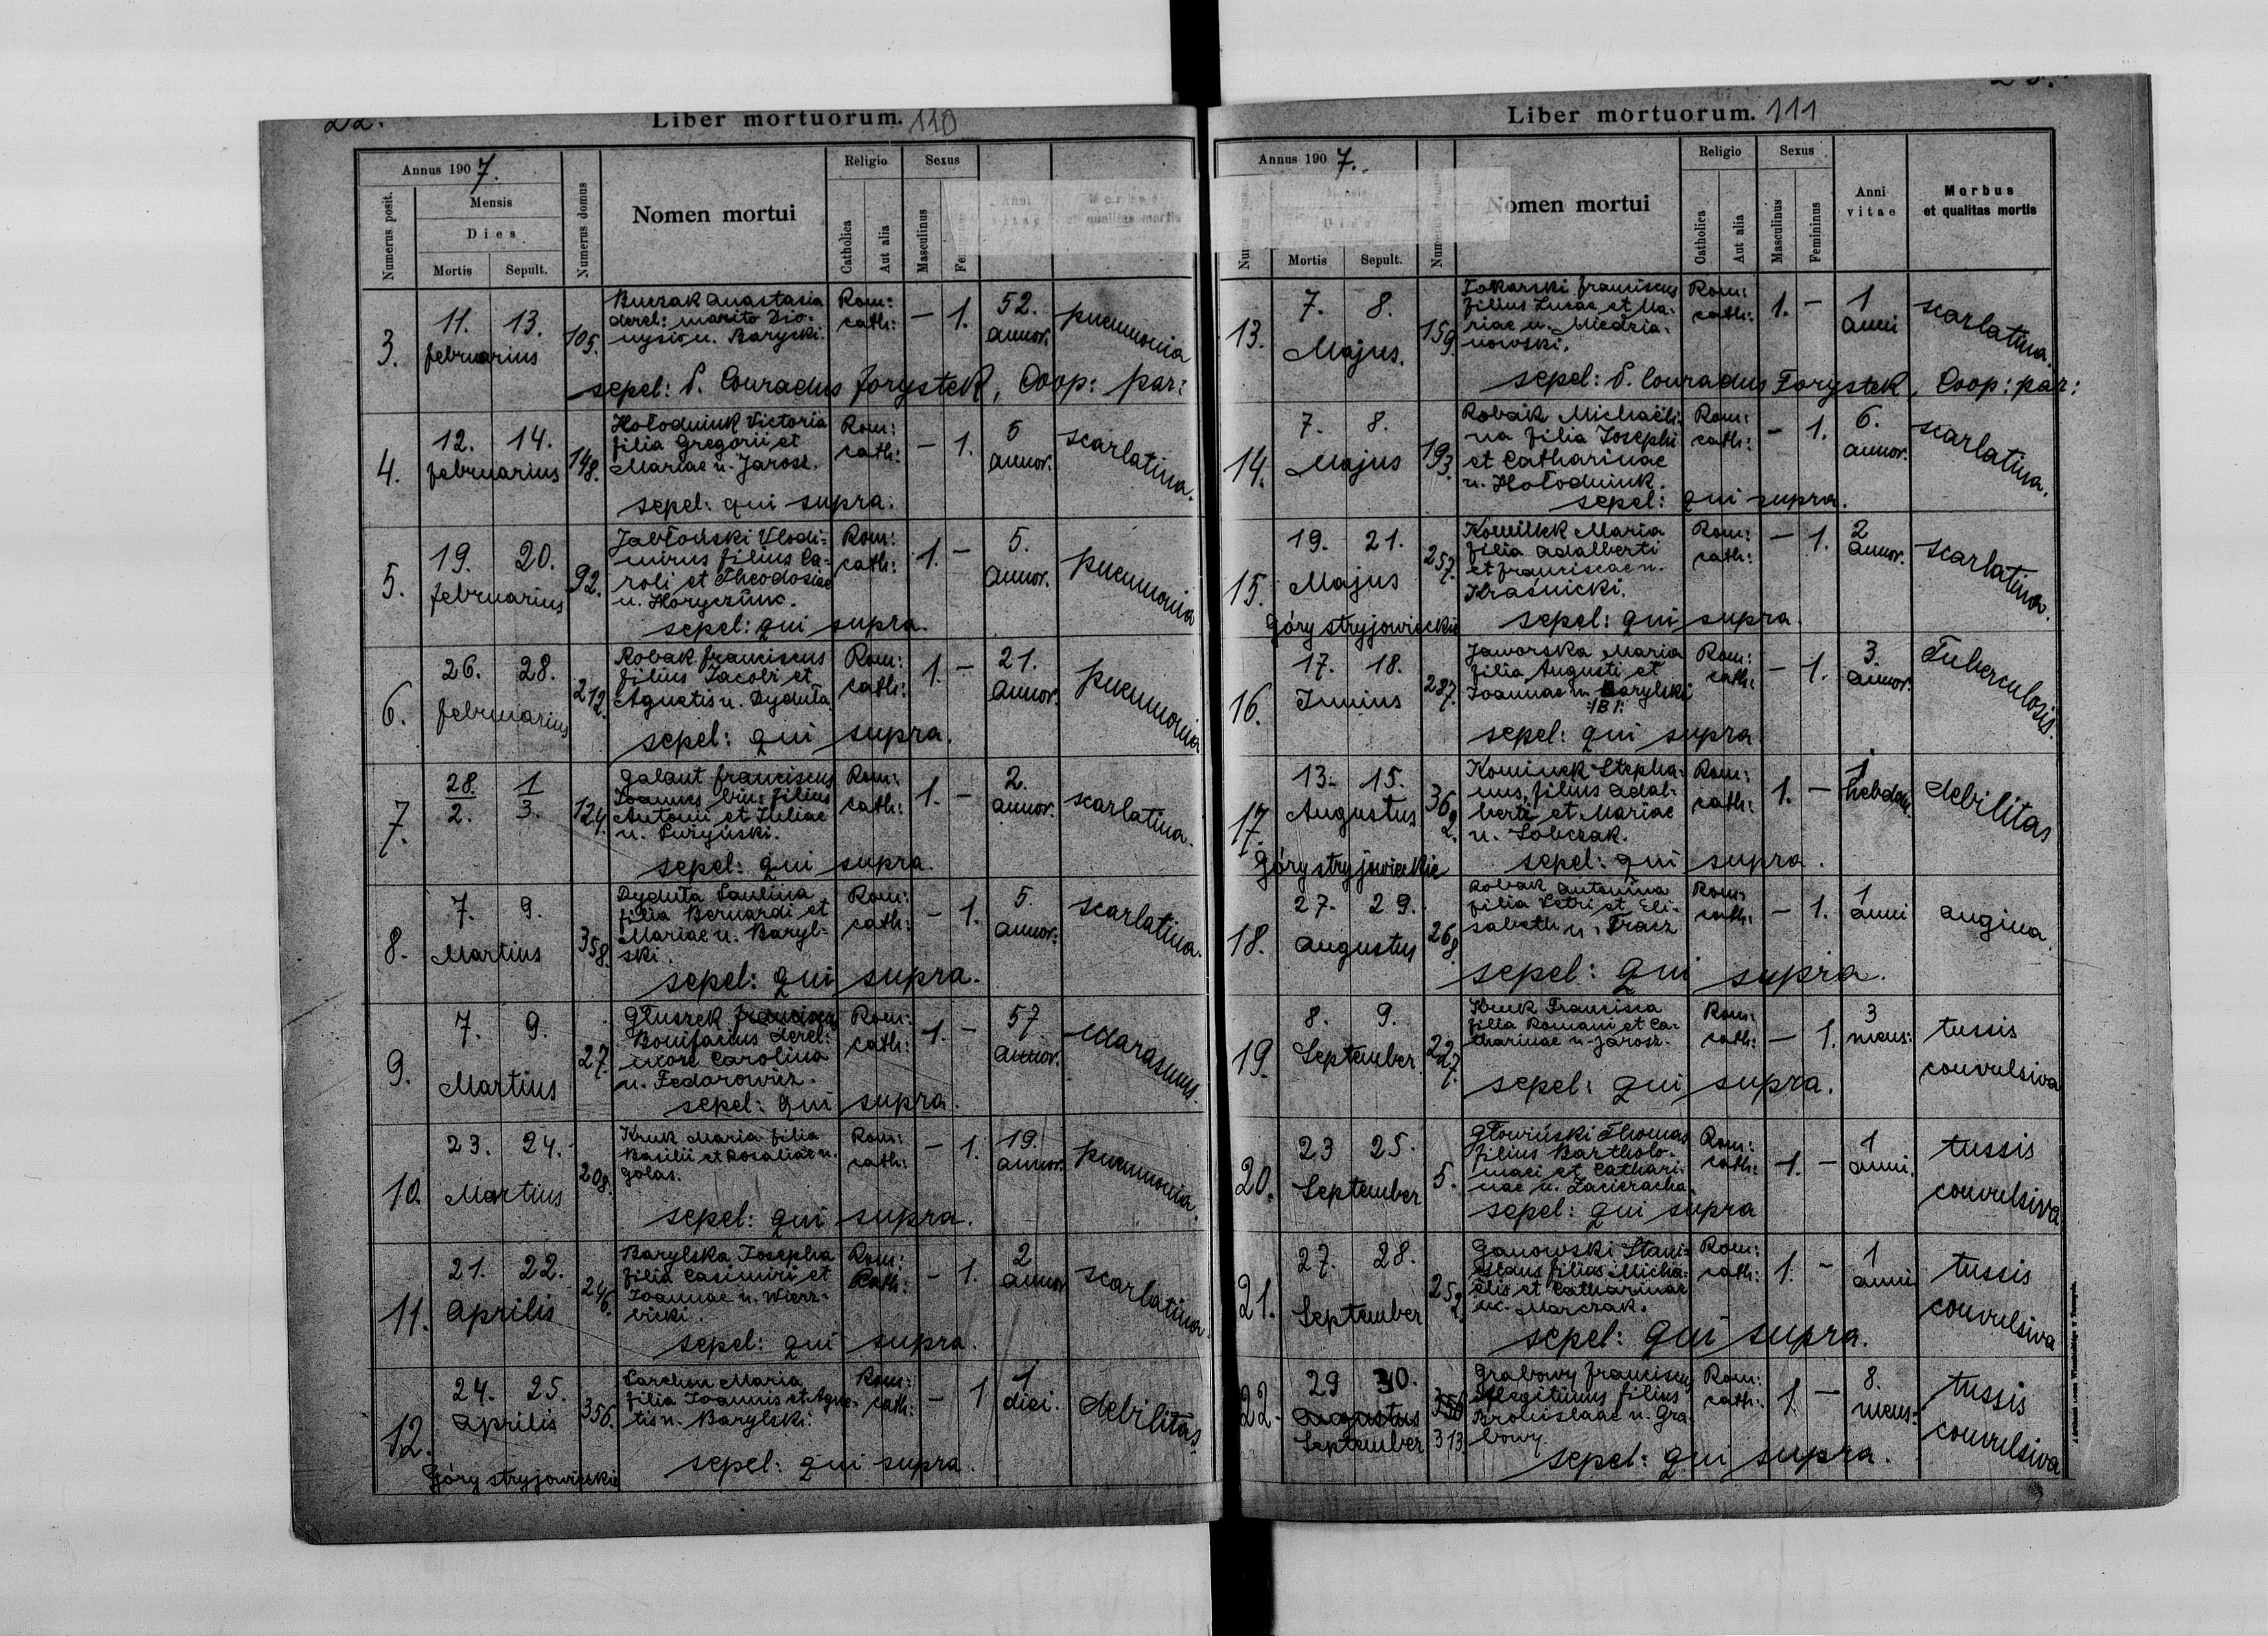 Liber mortuorum. 110
Annus 1907.
Numerus posit.
Mensis
Dies
Mortis
Sepult.
Numerus domus
Nomen mortui
Religio
Catholica
Aut alia
Sexus
Masculinus
Anni vitae
Morbus
qualitas mortis
3.
11. 13.
februarius
105.
Buczak Anastasia
derel: marito Dio-
nysio n. Barycki.
Rom:
cath:
– 1.
52.
annor.
pneumonia
sepel: P. Conradus Forystek, Coop: par:
4.
12. 14.
februarius
148.
Hołodniuk Victoria
filia Gregorii et
Mariae n. Jarosz.
Rom:
cath:
– 1.
5
annor.
scarlatina.
sepel: qui supra.
5.
19. 20.
februarius
92.
Jabłoński Vlodi-
mirus filius Ca-
roli et Theodosiae
n. Horyczun.
Rom:
cath:
1. –
5.
annor.
pneumonia
sepel: qui supra.
6.
26. 28.
februarius
212.
Robak franciscus
filius Jacobi et
Agnetis n. Dyduła
Rom:
cath:
1. –
21.
annor.
pneumonia
sepel: qui supra.
7.
28. 1
2. 3.
124.
Galant franciscus
Joannes bin: filius
Antonii et Juliae
n. Pużyński.
Rom:
cath:
1. –
2.
annor.
scarlatina.
sepel: qui supra.
8.
7. 9.
Martius
358.
Dyduła Paulina
filia Bernardi et
Mariae n. Baryl-
ski.
Rom:
cath:
– 1.
5.
annor:
scarlatina.
sepel: qui supra.
9.
7. 9.
Martius
27.
Głuszek
Bonifacius derel:
uxore Carolina
n. Fedorowicz.
Rom:
cath:
1. –
57
annor.
Marasmus.
sepel: qui supra.
10.
23. 24.
Martius
208.
Kruk Maria filia
Basilii et Rosaliae n.
Golas.
Rom:
cath:
– 1.
19.
annor.
pneumonia.
sepel: qui supra.
11.
21. 22.
Aprilis
246.
Barylska Josepha
filia Casimiri et
Joannae n. Wierz-
bicki.
Rom:
Cath:
– 1.
2
annor
scarlatina.
sepel: qui supra.
12.
24. 25.
Aprilis
356.
Parchon Maria
filia Joannis et Agne-
tis n. Barylski.
Rom:
cath:
– 1
1
diei.
debilitas.
Góry stryjowieckie
sepel: qui supra.
Liber mortuorum. 111
Annus 1907.
Mensis
Dies
Mortis
Sepult.
Nomen mortui
Religio
Catholica
Aut alia
Sexus
Masculinus
Femininus
Anni
vitae
Morbus
et qualitas mortis
13.
7. 8.
Majus.
159.
Tokarski franciscus
filius Lucae et Ma-
riae n. Miedzia-
nowski.
Rom:
cath:
1. –
1
anni
scarlatina.
sepel: P. Conradus Forystek, Coop: par:
14.
7. 8.
Majus
193.
Robak Michaeli-
na filia Josephi
et Catharinae
n. Hołodniuk.
Rom:
cath:
– 1.
6.
annor.
scarlatina.
sepel: qui supra.
15.
19. 21.
Majus
257.
Kominek Maria
filia Adalberti
et franciscae n.
Kraśnicki.
Rom:
cath:
– 1.
2
annor.
scarlatina.
Góry stryjowieckie
sepel: qui supra.
16.
17. 18.
Junius
287.
Jaworska Maria
filia Augusti et
Joannae n. Barylski
/:B:/
Rom:
cath:
– 1.
3.
annor.
Tuberculosis.
sepel: qui supra
17.
13. 15.
Augustus
362.
Kominek Stepha-
nus, filius Adal-
berti et Mariae
n. Sobczak.
Rom:
cath:
1. –
1
hebdom.
debilitas
Góry stryjowieckie
sepel: qui supra.
18.
27. 29.
Augustus
268.
Robak Antonina
filia Petri et Eli-
sabeth n. Tracz
Rom:
cath:
– 1.
1
anni
angina.
sepel: qui supra.
19.
8. 9.
September
227.
Kruk Francisca
filia Romani et Ca-
tharinae n. Jarosz.
Rom:
cath:
– 1.
3
mens:
tussis
convulsiva
sepel: qui supra.
20.
23 25.
September
5.
Głowiński Thomas
filius Bartholo-
maei et Cathari-
nae n. Zacieracha.
Rom:
cath:
1. –
1
anni.
tussis
convulsiva
sepel: qui supra
21.
27. 28.
September
252.
Ganowski Stani-
slaus filius Micha-
elis et Catharinae
n. Marczak.
Rom:
cath:
1. –
1
anni
tussis
convulsiva
sepel: qui supra.
22.
29 30.
Augustus
September
313
Grabowy franciscus
illegitimus filius
Bronislaae n. Gra-
bowy.
Rom:
cath:
1. –
8.
mens:
tussis
convulsiva
sepel: qui supra.